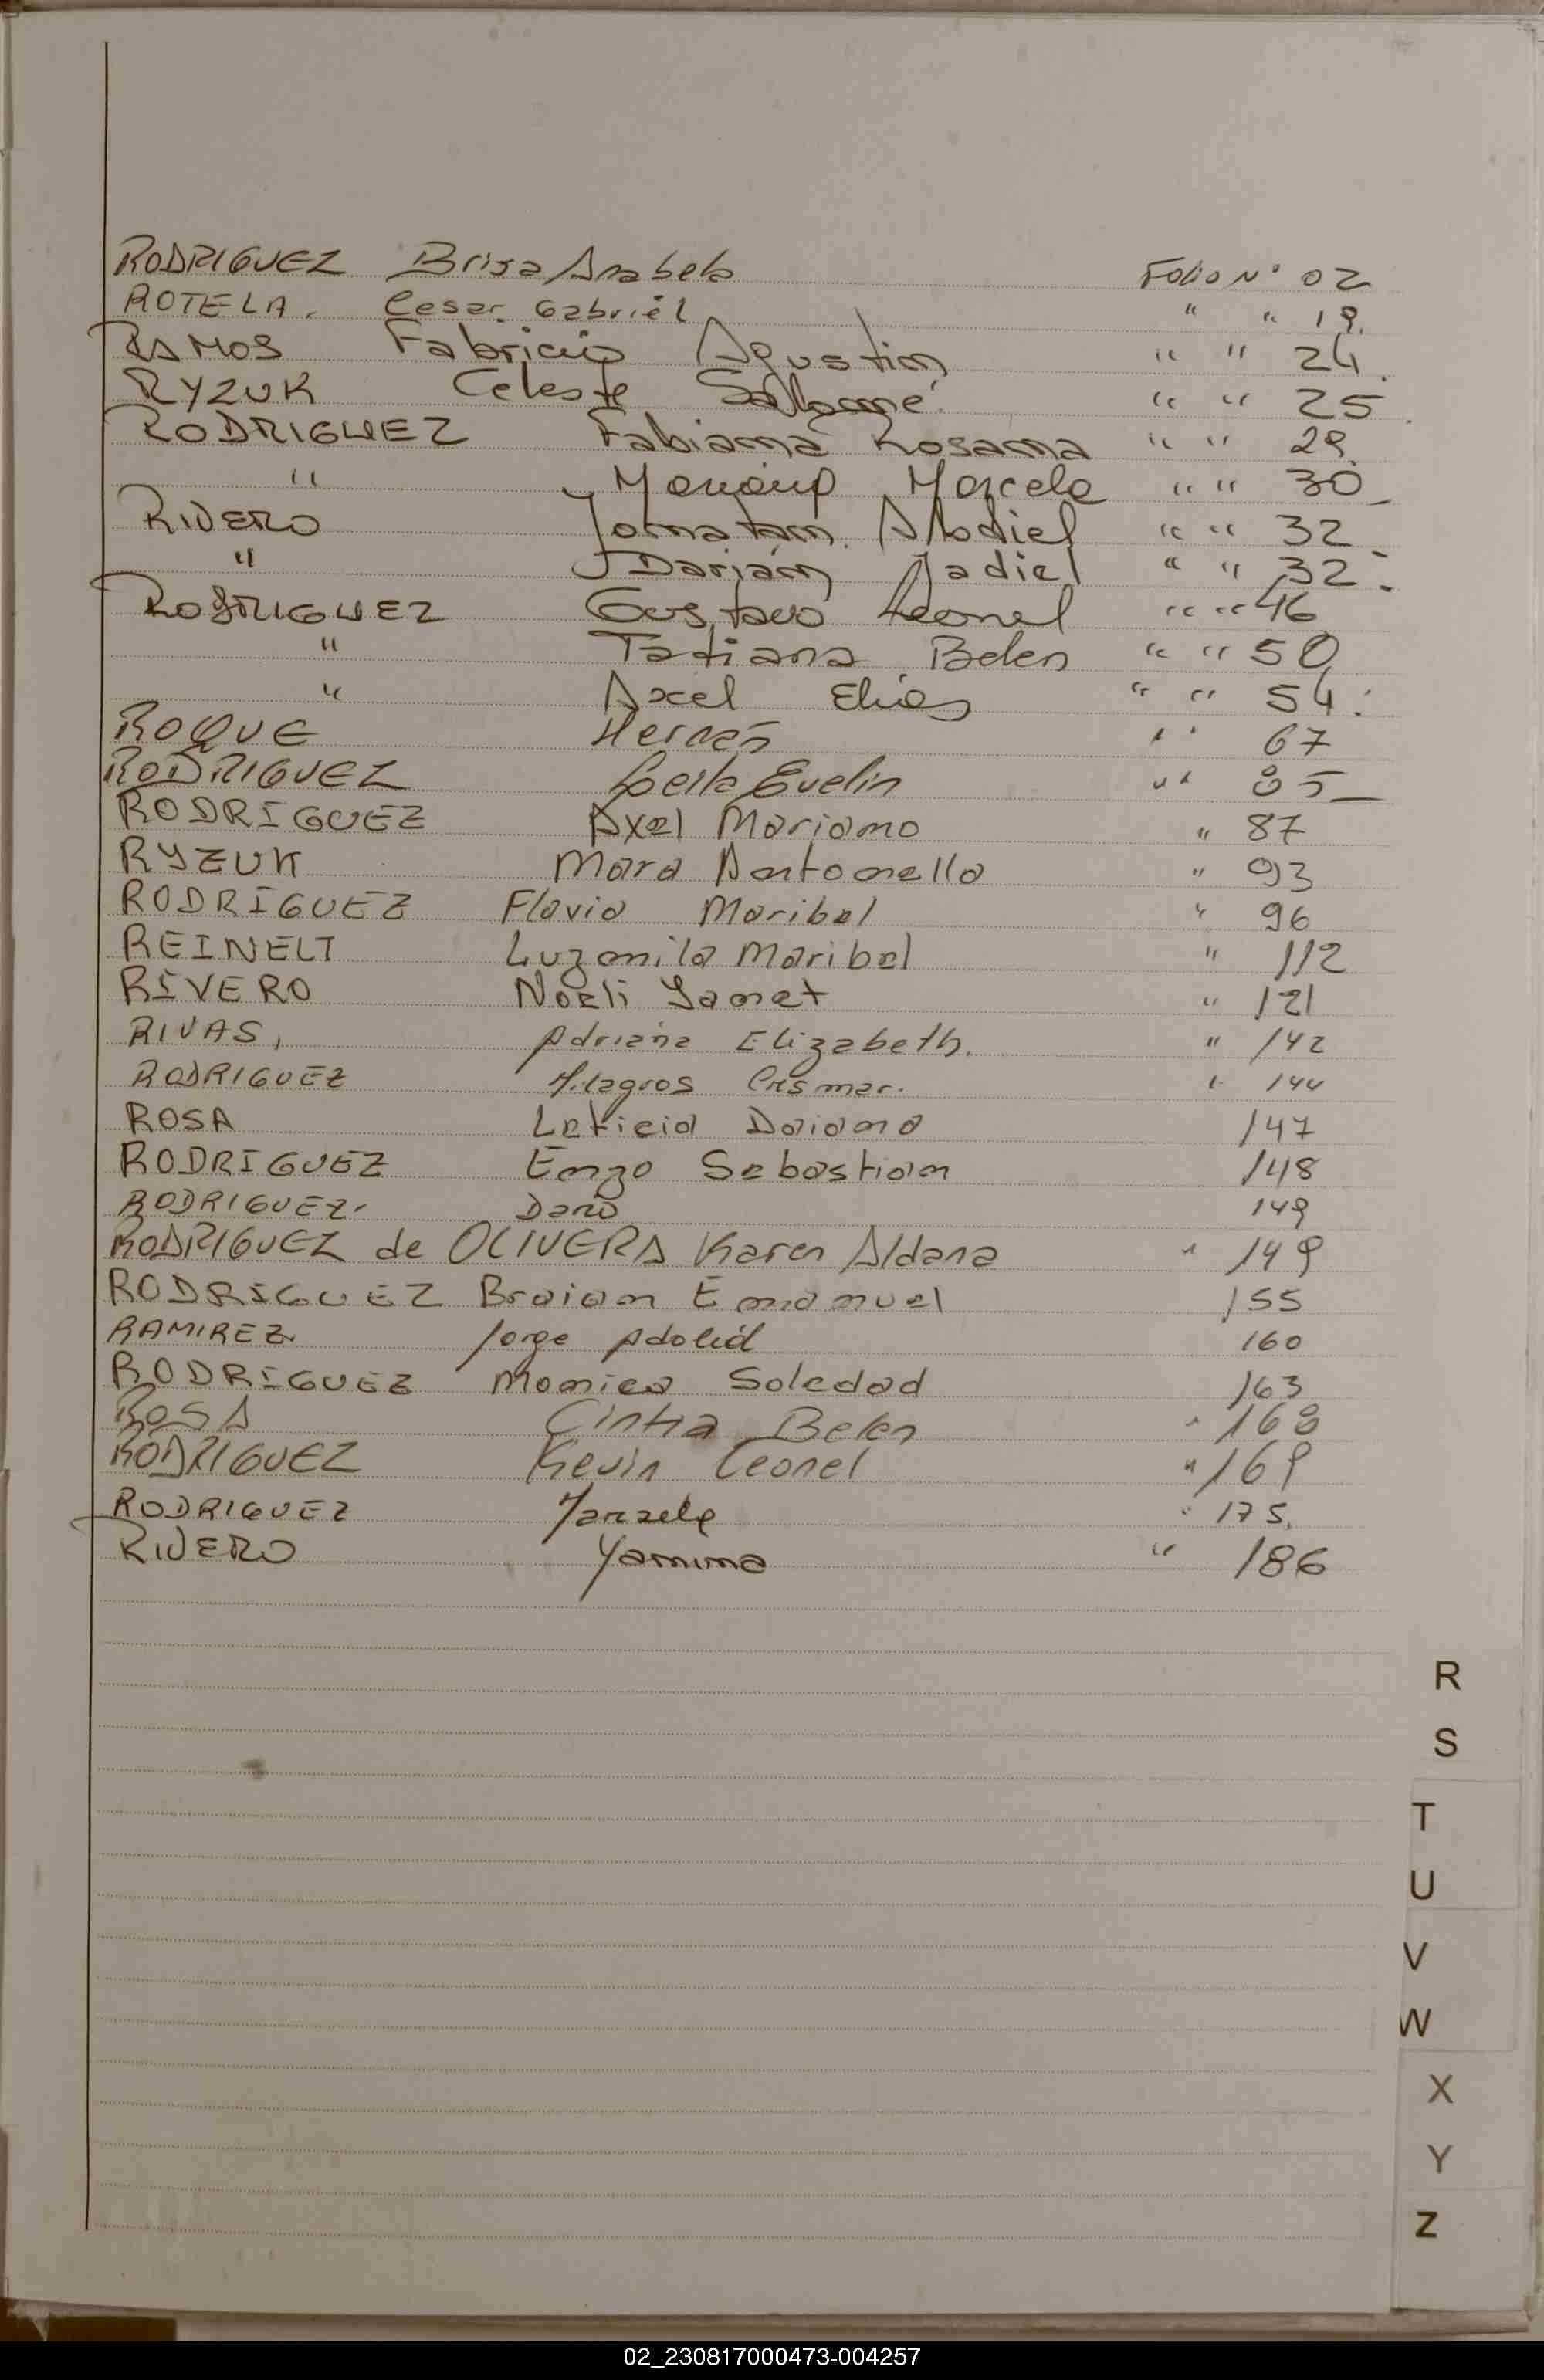 RODRIGUEZ Brisa Anabela Folio Nº 02
ROTELA. Cesar Gabriel " " 19.
RAMOS Fabricio Agustin " " 24.
RYZUK Celeste Salomé. " " 25.
RODRIGUEZ Fabiana Rosana " " 29.
" Marcela " " 30
RIVERO Jonatan Abdiel " " 32
" Darián Jadiel " " 32.
RODRIGUEZ Gustavo Leonel " " 46
" Tatiana Belen " " 50
" Axel Elias " " 54.
ROQUE Hernán " " 67
RODRIGUEZ Leila Evelin " " 85
RODRIGUEZ Axel Mariano " 87
RYZUK Mara Antonella " 93
RODRIGUEZ Flavia Maribel " 96
REINELT Luzmila Maribel " 112
RIVERO Noeli Yanet " 121
RIVAS, Adriana Elizabeth. " 142
RODRIGUEZ Milagros " 144
ROSA Leticia Daiana 147
RODRIGUEZ Enzo Sebastian 148
RODRIGUEZ. Dario 149
RODRIGUEZ de OLIVERA Karen Aldana " 149
RODRIGUEZ Braian Emanuel 155
RAMIREZ. Jorge 160
RODRIGUEZ Monica Soledad 163
ROSA Cintia Belen " 168
RODRIGUEZ Kevin Leonel " 169
RODRIGUEZ " 175.
RIVERO Yamina " 186
R
S
T
U
V
W
X
Y
Z
02_230817000473-004257